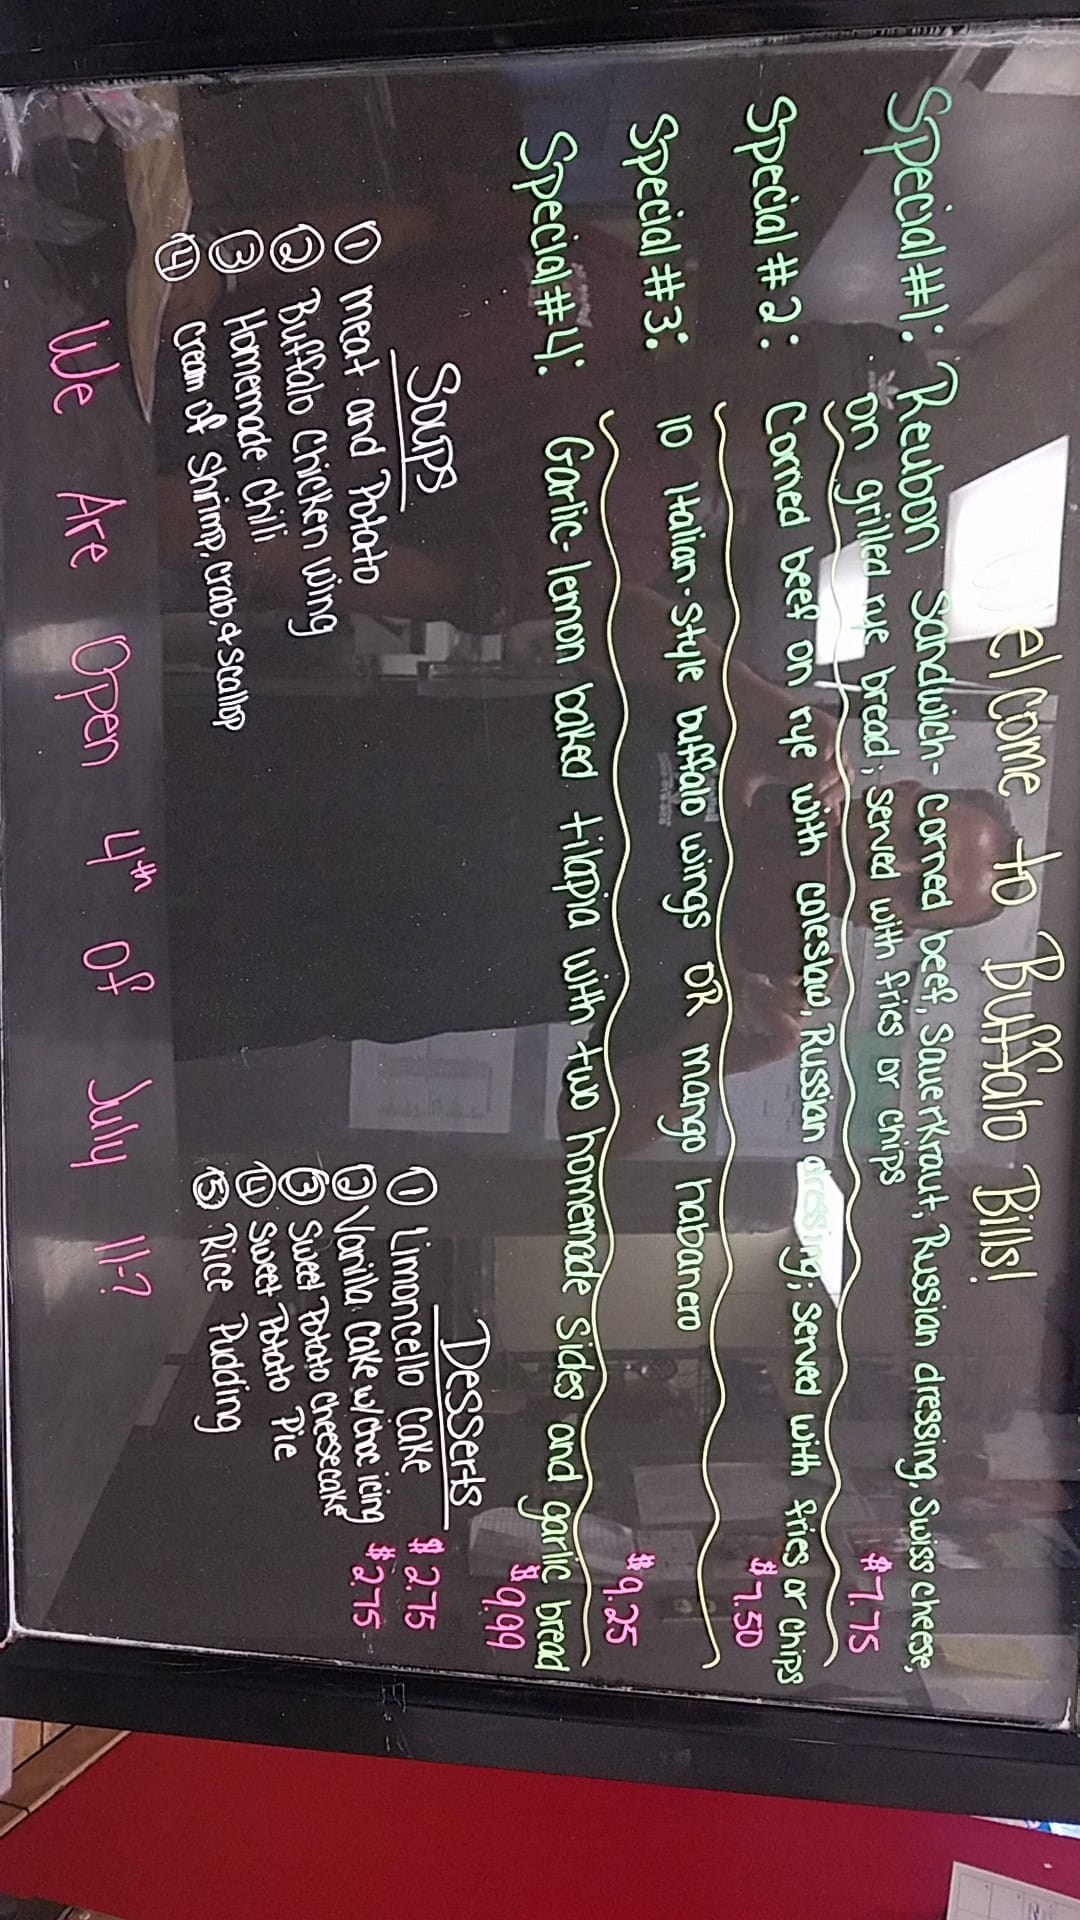 Welcome to Buffalo Bills!
Special #1: Reubon Sandwich- Corned beef, Sauerkraut, Russian dressing, Swiss cheese,
on grilled rye bread; served with fries or chips
$7.75
Special #2: Corned beef on rye with coleslaw, Russian dressing; served with fries or chips
$7.50
Special #3: 10 Italian-Style buffalo wings OR mango habanero
$9.25
Special #4: Garlic-lemon baked tilapia with two homemade sides and garlic bread
$9.99
Soups
① Meat and Potato
② Buffalo Chicken Wing
③ Homemade Chili
④ Cream of Shrimp, Crab, & Scallop
Desserts
① Limoncello Cake $2.75
② Vanilla Cake w/choc icing $2.75
③ Sweet Potato Cheesecake
④ Sweet Potato Pie
⑤ Rice Pudding
We Are Open 4th of July 11-?